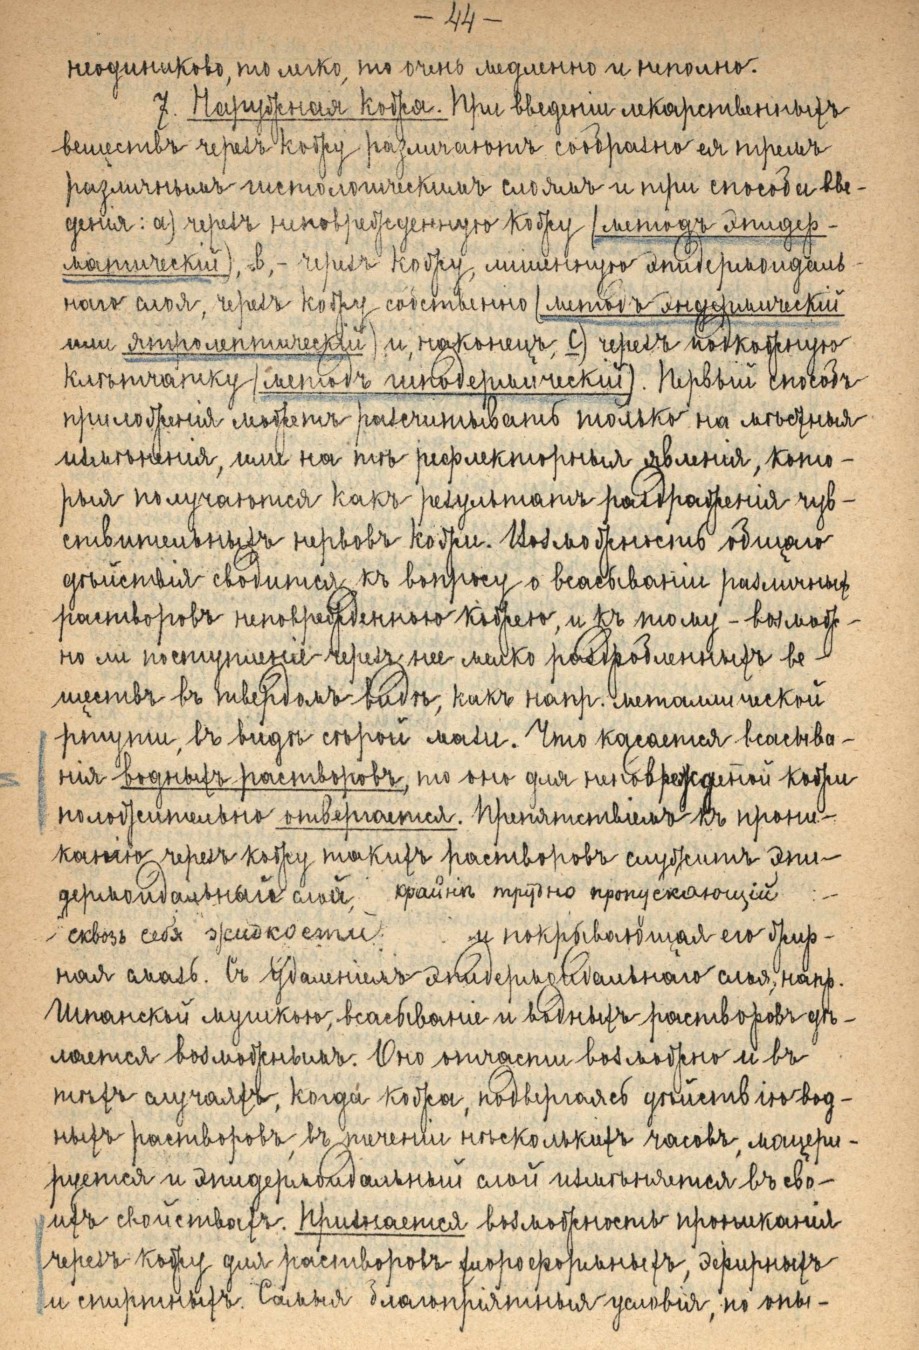 – 44 –
неодинаково, то легко, то очень медленно и неполно.
7. Наружная кожа. При введеніи лекарственныхъ
веществъ черезъ кожу различаютъ сообразно ея тремъ
различнымъ гистологическимъ слоямъ и три способа вве-
денія: а) черезъ неповрежденную кожу (методъ эпидер-
матическій), в,- черезъ кожу, лишенную эпидермоидаль-
наго слоя, черезъ кожу собственно (методъ эндермическій
или ятролептическій) и, наконецъ, С) черезъ подкожную
клѣтчатку (методъ гиподермическій). Первый способъ
приложенія можетъ разсчитывать только на мѣстныя
измѣненія, или на тѣ рефлекторныя явленія, кото-
рыя получаются какъ результатъ раздраженія чув-
ствительныхъ нервовъ кожи. Возможность общаго
дѣйствія сводится къ вопросу о всасываніи различныхъ
растворовъ неповрежденною кожею, и къ тому – возмож-
но ли поступленіе черезъ нее мелко раздробленныхъ ве-
ществъ въ твердомъ видѣ, какъ напр. металлической
ртути, въ видѣ сѣрой мази. Что касается всасыва-
нія водныхъ растворовъ, то оно для неповрежденой кожи
положительно отвергается. Препятствіемъ къ прони-
канію черезъ кожу такихъ растворовъ служитъ эпи-
дермоидальный слой, крайнѣ трудно пропускающій
сквозь себя жидкости и покрывающая его жир-
ная мазь. Съ удаленіемъ эпидермоидальнаго слоя, напр.
Шпанской мушкою, всасываніе и водныхъ растворовъ дѣ-
лается возможнымъ. Оно отчасти возможно и въ
тѣхъ случаяхъ, когда кожа, подвергаясь дѣйствію вод-
ныхъ растворовъ, въ теченіи нѣсколькихъ часовъ, мацери-
руется и эпидермоидальный слой измѣняется въ сво-
ихъ свойствахъ. Признается возможность проникания
черезъ кожу для растворовъ хлороформныхъ, эфирныхъ
и спиртныхъ. Самыя благопріятныя условія, по опы-